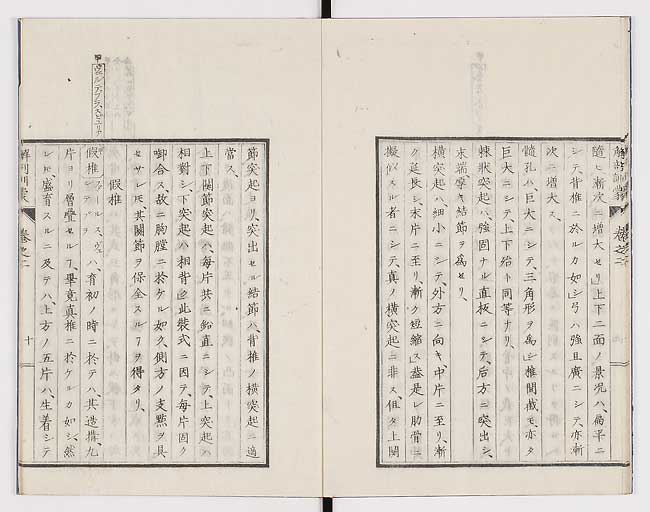 隨ヒ漸次ニ増大セリ」上下二面ノ景況ハ、扁平ニ
シテ、脊椎ニ於ルカ如シ」弓ハ強且廣ニシテ、亦漸
次ニ増大ス、
髓孔ハ、巨大ニシテ、三角形ヲ爲シ椎間截モ、亦タ
巨大ニシテ、上下殆ト同等ナリ、
棘狀突起ハ、強固ナル直板ニシテ、后方ニ突出シ、
末端厚キ結節ヲ爲セリ、
横突起ハ、細小ニシテ、外方ニ向キ、中片ニ至リ、漸
ク延長シ、末片ニ至リ、漸ク短縮ス、蓋是レ肋骨ニ
擬似スル者ニシテ、真ノ横突起ニ非ス、但タ上関
解剖訓蒙
卷之二
節突起ヨリ、突出セル結節ハ、脊椎ノ横突起ニ適
當ス、
上下関節突起ハ、毎片共ニ鉛直ニシテ、上突起ハ
相對シ、下突起ハ相背ク、此裝式ニ因テ、毎片固ク
㗸合ス、故ニ胸膛ニ於ケル如ク、側方ノ支㸃ヲ具
セサレトモ、其関節ヲ保全スルヿヲ得タリ、
假椎
假椎
ハ、育初ノ時ニ於テハ、其造搆、九
片ヨリ層疊セルヿ、畢竟真椎ニ於ケルカ如シ、然
レトモ盛育スルニ及テハ、上方ノ五片ハ、生着シテ
解剖訓蒙
卷之二
十